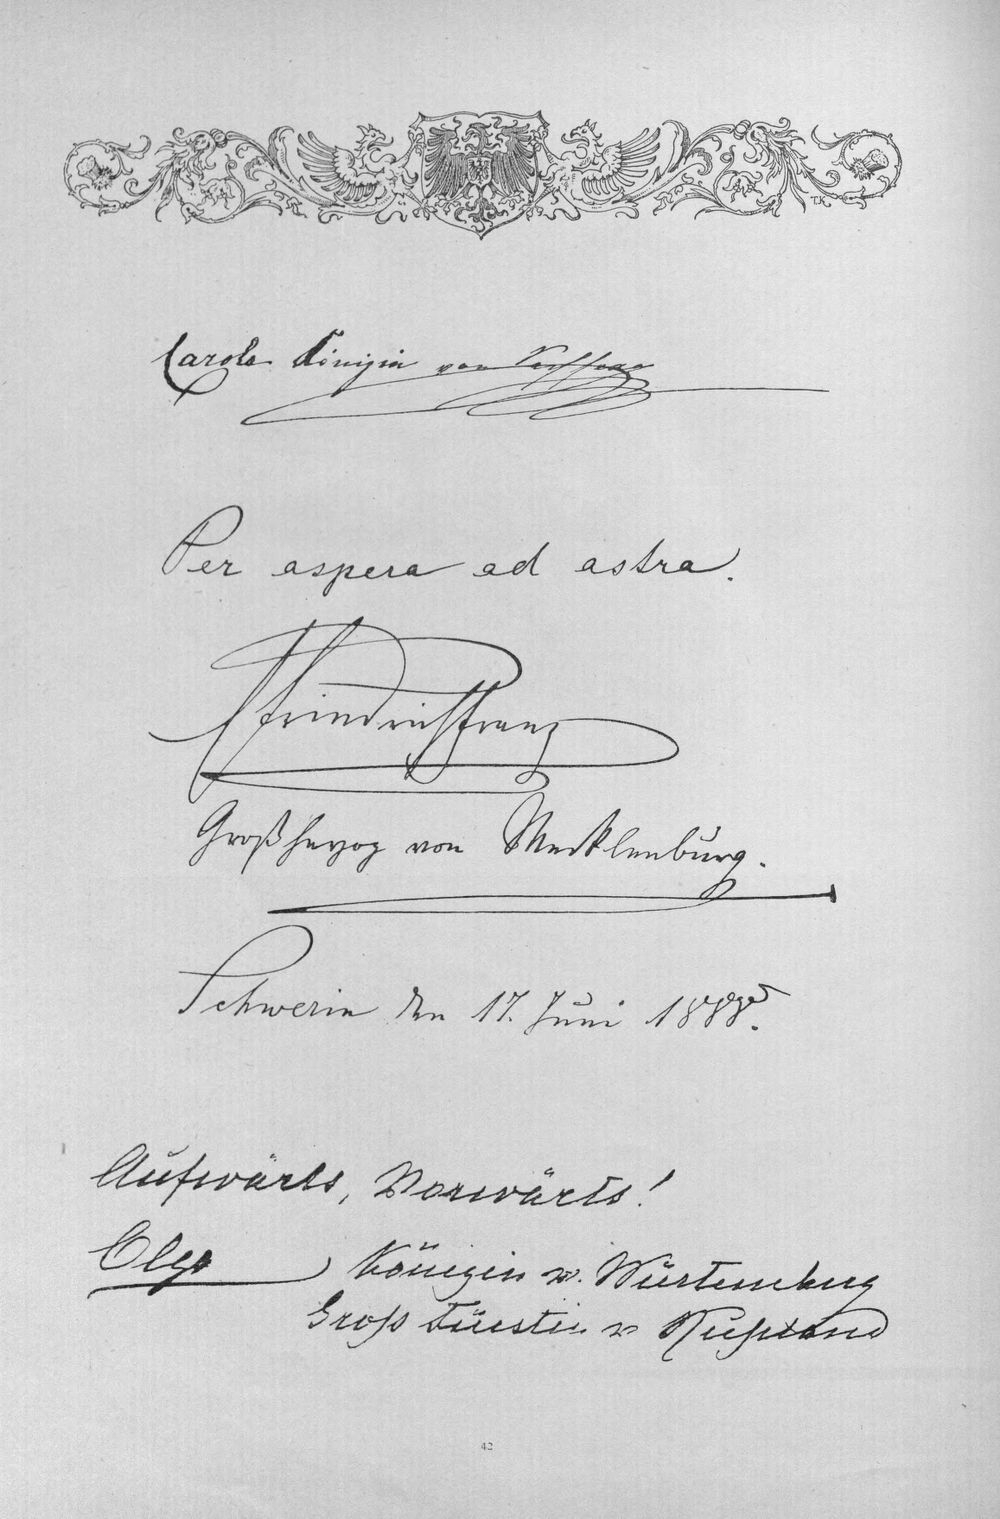 Carola Königin von Sachsen
Per aspera ad astra.
Friedrich Franz
Großherzog von Mecklenburg.
Schwerin den 17. Juni 1888.
Aufwärts, Vorwärts!
Olga, Königin v. Würtemberg
Gross Fürstin v Rußland
TK
42